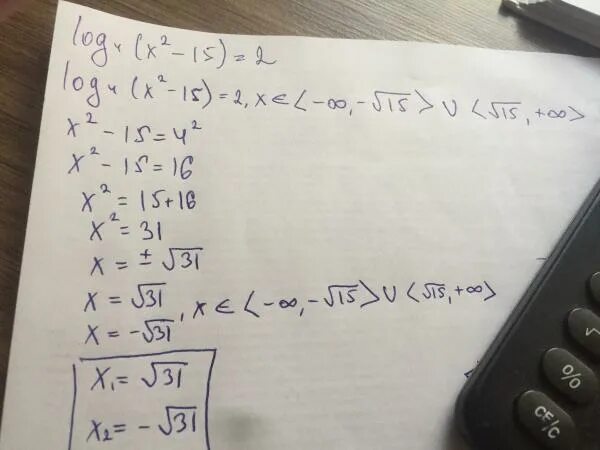 log₄ (x² - 15) = 2
log₄ (x² - 15) = 2, x ∈ ⟨-∞, -√15⟩ ∪ ⟨√15, +∞⟩
x² - 15 = 4²
x² - 15 = 16
x² = 15 + 16
x² = 31
x = ± √31
x = √31
x = -√31 , x ∈ ⟨-∞, -√15⟩ ∪ ⟨√15, +∞⟩
x₁ = √31
x₂ = - √31
√
%
CE/C